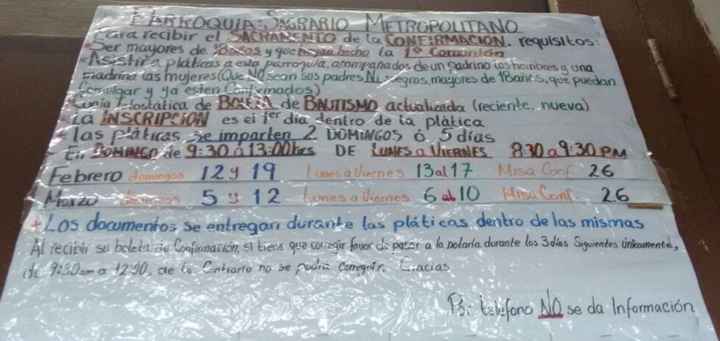 PARROQUIA: SAGRARIO METROPOLITANO
Para recibir el SACRAMENTO de la CONFIRMACIÓN, requisitos:
Ser mayores de y que hayan hecho la 1ª Comunión
Asistir a pláticas a esta parroquia, acompañados de un padrino los hombres y una
madrina las mujeres (Que NO sean sus padres NI suegros, mayores de 18 años, que puedan
Comulgar y ya estén Confirmados)
Copia Fostática de BOLETA de BAUTISMO actualizada (reciente, nueva)
La INSCRIPCIÓN es el 1er día dentro de la plática
las pláticas se imparten 2 DOMINGOS ó 5 días
En DOMINGO de 9:30 a 13:00 hrs DE LUNES a VIERNES 8:30 a 9:30 PM
Febrero domingos 12 y 19 Lunes a Viernes 13 al 17 Misa Conf. 26
Marzo domingos 5 y 12 Lunes a Viernes 6 al 10 Misa Conf. 26
+ Los documentos se entregan durante las pláticas, dentro de las mismas
Al recibir su boleta de Confirmación, si tiene que corregir favor de pasar a la notaría durante los 3 días Siguientes únicamente,
de 9:30am a 12:30, de lo Contrario no se podrá Corregir. Gracias
Por teléfono NO se da Información